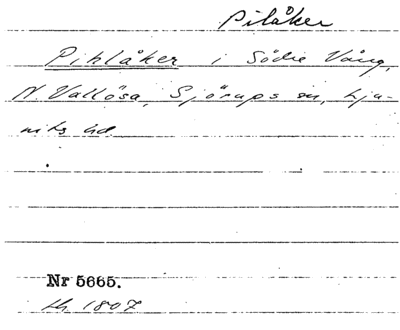 Pilåker
Pihlåker i Södre Vång,
N. Vallösa, Sjörups sn, Lju-
nits hd
Nr 5665.
LH. 1807